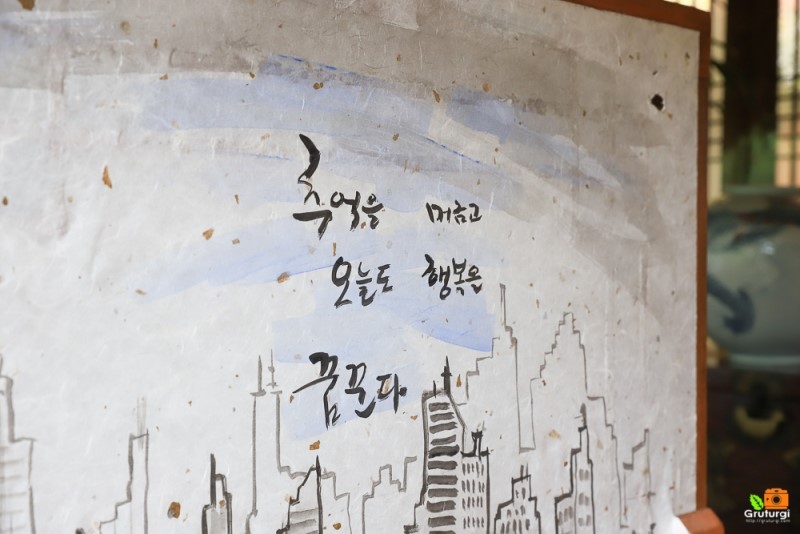 추억을 머금고
오늘도 행복을
꿈꾼다
Gruturgi